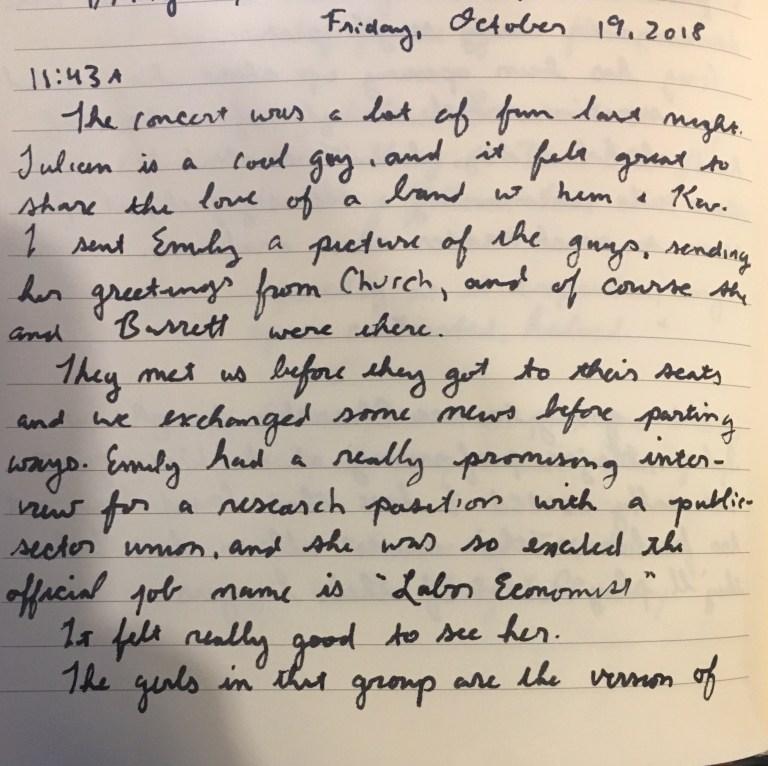 Friday, October 19, 2018
11:43 A
The concert was a lot of fun last night.
Julian is a cool guy, and it felt great to
share the love of a band w him & Kev.
I sent Emily a picture of the guys, sending
her greetings from Church, and of course she
and Barrett were there.
They met us before they got to their seats
and we exchanged some news before parting
ways. Emily had a really promising inter-
view for a research position with a public-
sector union, and she was so excited the
official job name is "Labor Economist"
It felt really good to see her.
The girls in that group are the version of